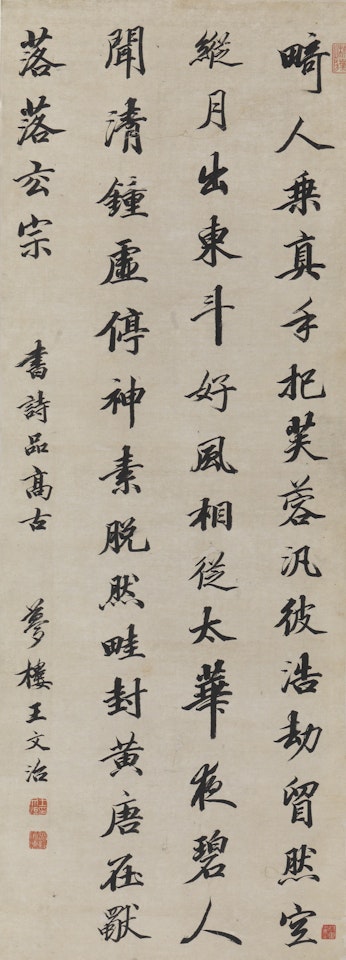 畸人乗真手把芙蓉汎彼浩劫窅然空
縱月出東斗好風相從太華夜碧人
聞清鐘虛停神素脫然畦封黃唐在獨
落落玄宗 書詩品高古 夢樓王文治